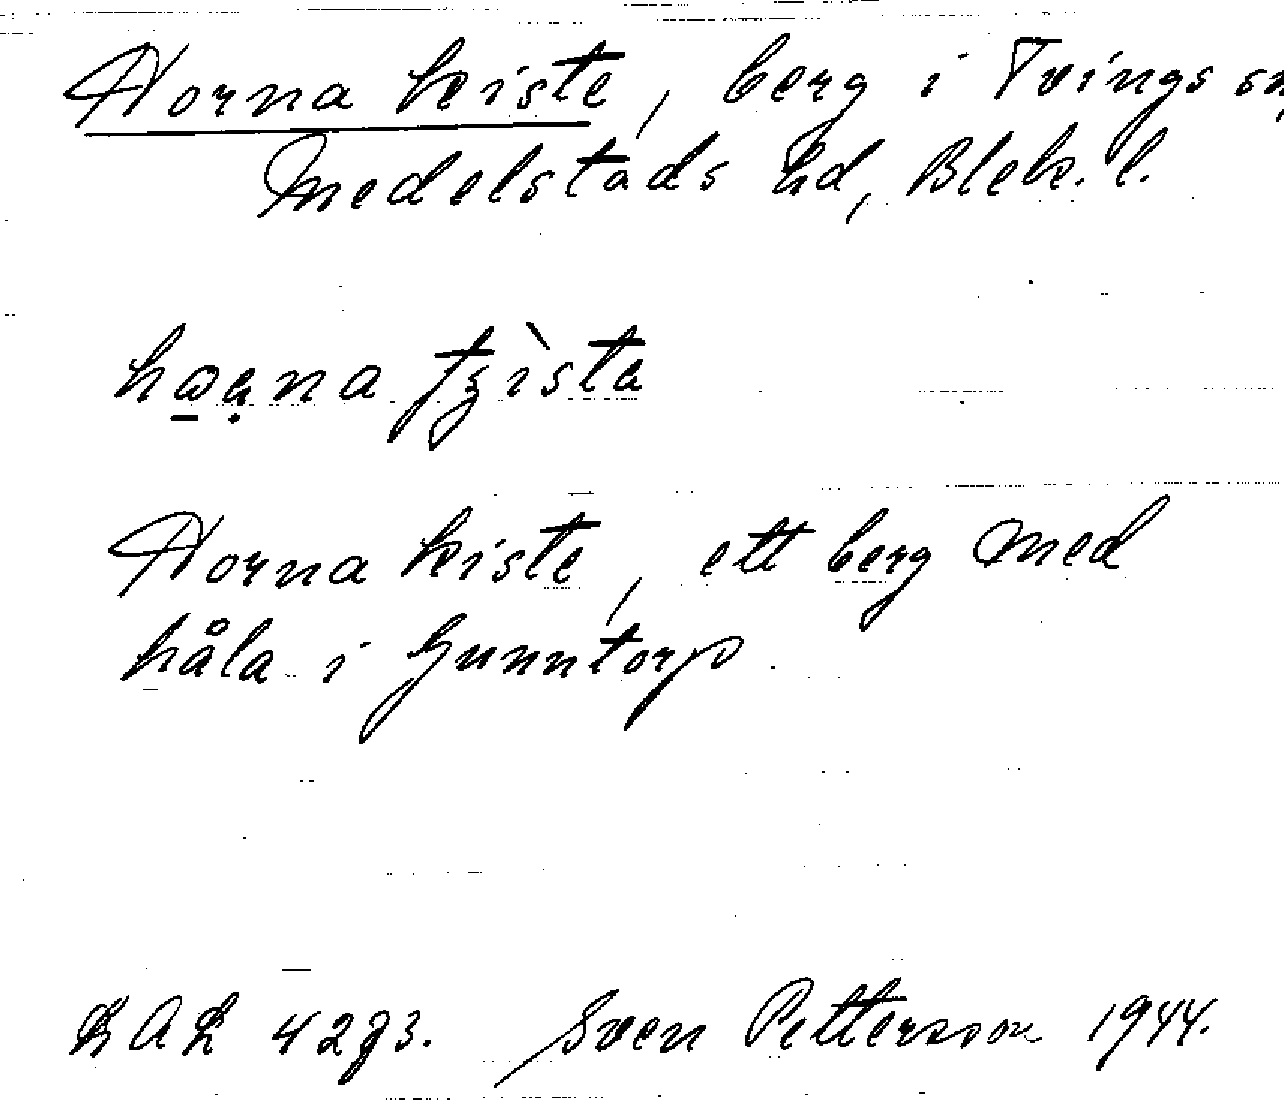 Horna kiste, berg i Tvings sn,
Medelstads hd, Blek. l.
Horna kiste, ett berg med
håla i Gunntorp.
LAL 4293. Sven Pettersson 1944.